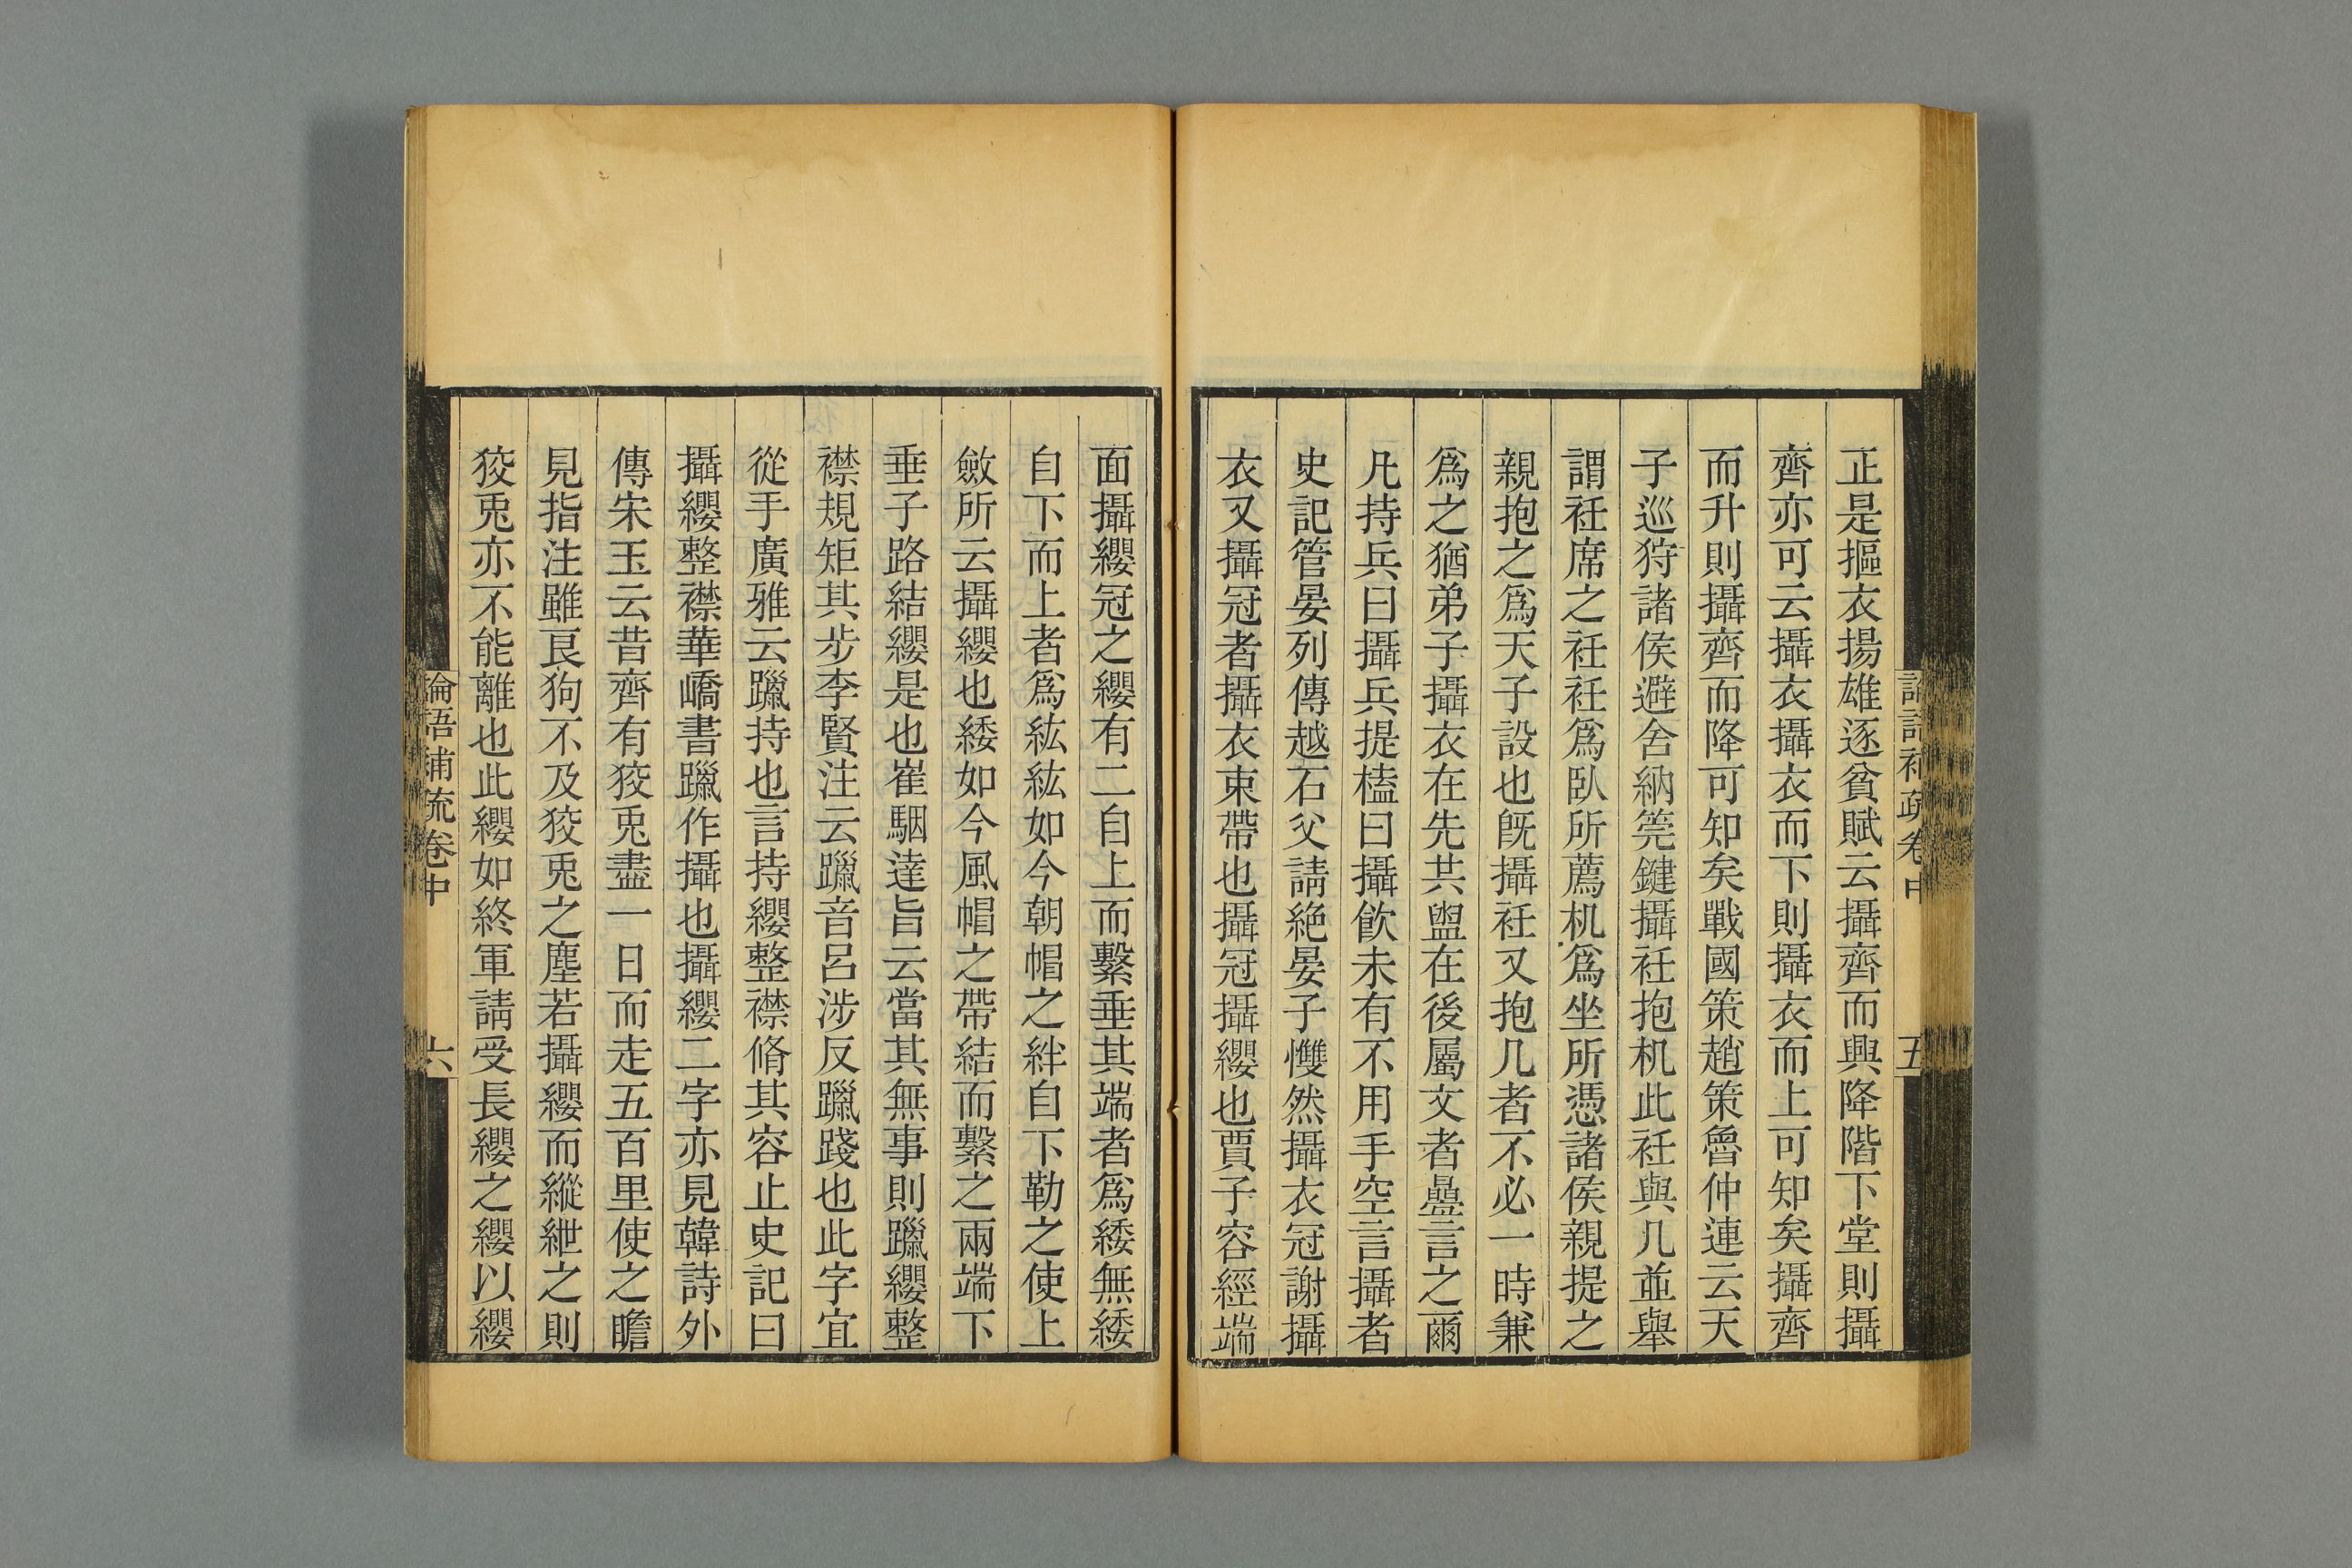 論語補疏卷中
五
正是摳衣揚雄逐貧賦云攝齊而興降階下堂則攝
齊亦可云攝衣攝衣而下則攝衣而上可知矣攝齊
而升則攝齊而降可知矣戰國策趙策魯仲連云天
子巡狩諸侯避舍納筦鍵攝衽抱机此衽與几並舉
謂衽席之衽衽爲臥所薦机爲坐所憑諸侯親提之
親抱之爲天子設也旣攝衽又抱几者不必一時兼
爲之猶弟子攝衣在先共盥在後屬文者曡言之爾
凡持兵曰攝兵提榼曰攝飮未有不用手空言攝者
史記管晏列傳越石父請絶晏子戄然攝衣冠謝攝
衣又攝冠者攝衣束帶也攝冠攝纓也賈子容經端
面攝纓冠之纓有二自上而繫垂其端者爲緌無緌
自下而上者爲紘紘如今朝帽之絆自下勒之使上
斂所云攝纓也緌如今風帽之帶結而繫之兩端下
垂子路結纓是也崔駰達旨云當其無事則躐纓整
襟規矩其步李賢注云躐音呂涉反躐踐也此字宜
從手廣雅云躐持也言持纓整襟脩其容止史記曰
攝纓整襟華嶠書躐作攝也攝纓二字亦見韓詩外
傳宋玉云昔齊有狡兎盡一日而走五百里使之瞻
見指注雖良狗不及狡兎之塵若攝纓而縱紲之則
狡兎亦不能離也此纓如終軍請受長纓之纓以纓
論語補疏卷中
六